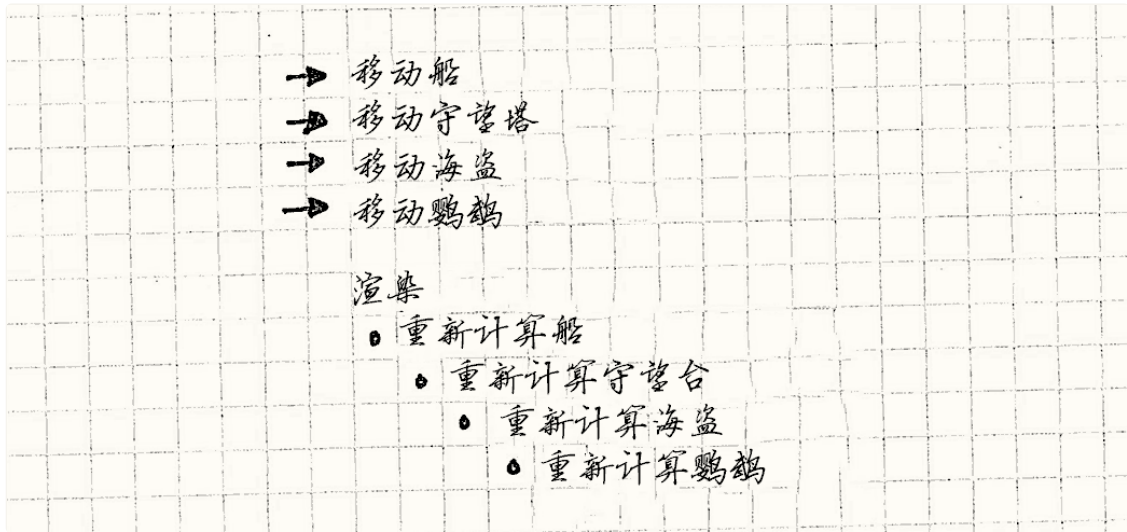 移动船
移动守望塔
移动海盗
移动鹦鹉
渲染
重新计算船
重新计算守望台
重新计算海盗
重新计算鹦鹉